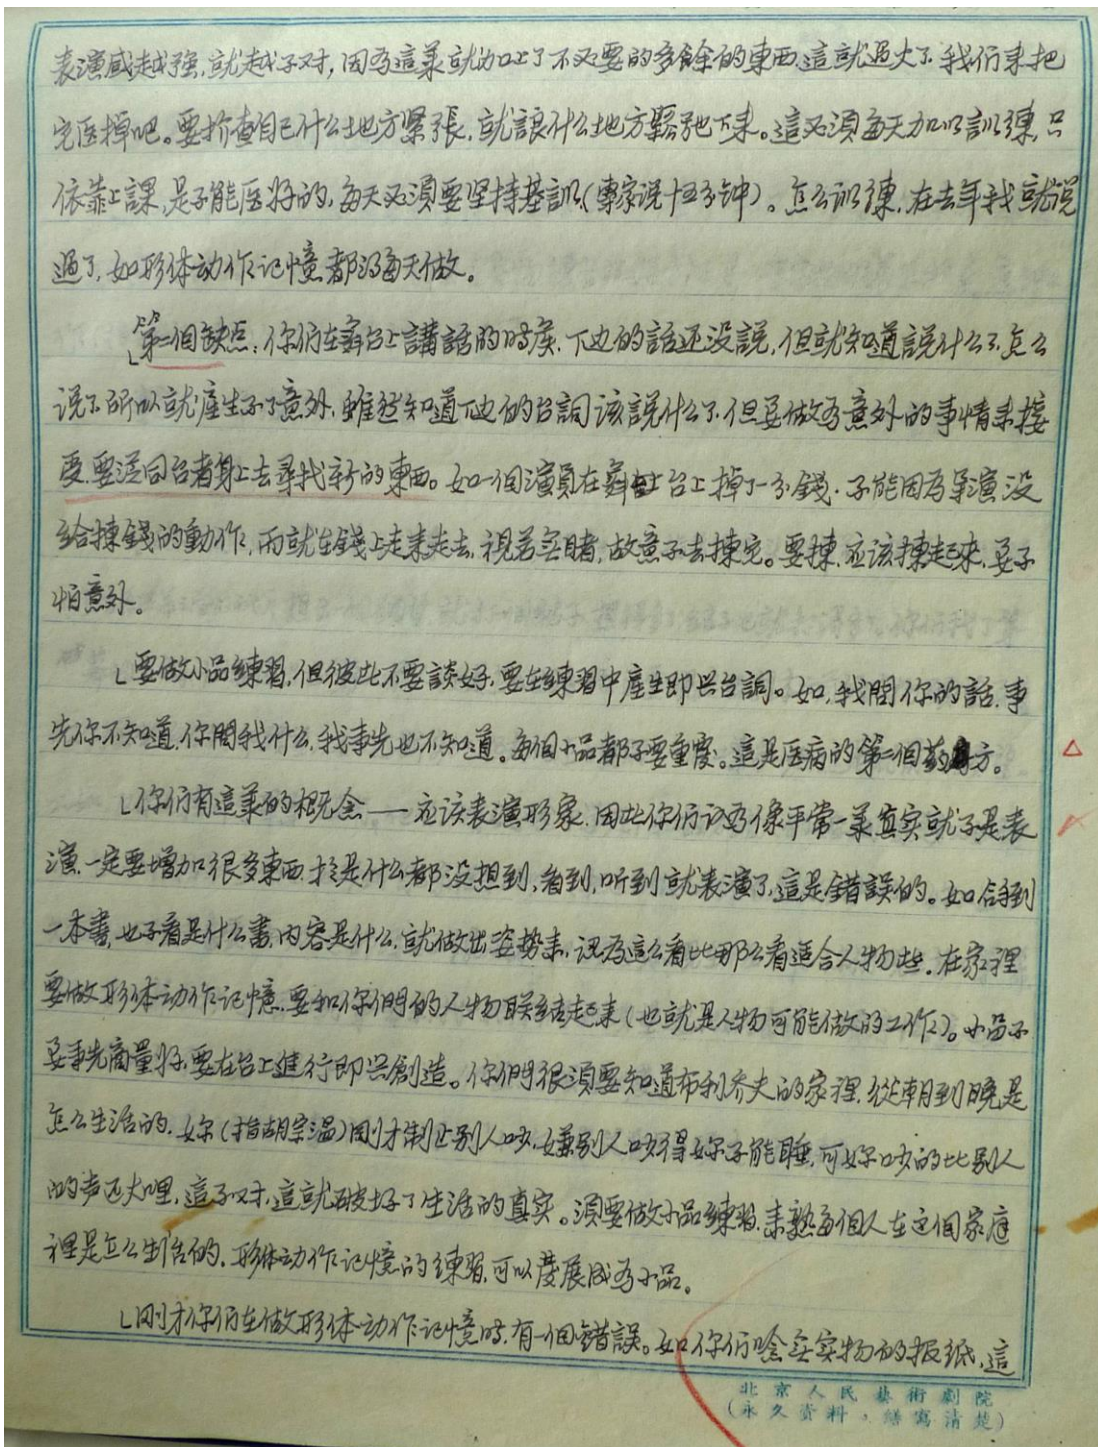 表演感越强,就越不对,因为這來就加上了不必要的多餘的東西,這就過火了.我们来把
它医掉吧。要撿查自己什么地方緊張,就讓什么地方鬆弛下来。這必須每天加以訓練,只
依靠上課,是不能医好的,每天必須要坚持基訓(專家说十五分钟)。怎么训練,在去年我就说
過了,如形体动作记憶都得每天做。
「第二個缺点:你们在舞台上講話的時矦,下边的話还没説,但就知道説什么了.怎么
说了.所以就產生不了意外,雖然知道下边的台詞该説什么了.但要做为意外的事情来接
受.要從同台者身上去尋找新的東西。如一個演員在舞台上掉了一分錢.不能因为导演没
给揀錢的動作,而就在錢上走来走去,視若無睹,故意不去揀它。要揀,应该揀起来,要不
怕意外。
「要做小品練習,但彼此不要談好,要在練習中產生即兴台詞。如,我問你的話.事
先你不知道,你問我什么,我事先也不知道。每個小品都不要重复。這是医病的第二個药方。
「你们有這來的概念——应该表演形象.因此你们认为像平常一來真实就不是表
演.一定要增加很多東西.於是什么都没想到,看到,听到就表演了,這是錯誤的。如拿到
一本書,也不看是什么書,内容是什么,就做出姿势来,認为這么看比那么看適合人物些.在家裡
要做形体动作记憶.要和你們的人物联結起来(也就是人物可能做的工作)。小品不
要事先商量好,要在台上進行即兴創造。你們很須要知道布利乔夫的家裡,從朝到晚是
怎么生活的.妳(指胡宗温)刚才制止别人吵.嫌别人吵得妳不能睡,可妳吵的比别人
的声还大哩,這不对,這就破坏了生活的真实。須要做小品練習.来熟每個人在这個家庭
裡是怎么生活的.形体动作记憶的練習,可以發展成为小品。
「刚才你们在做形体动作记憶時,有一個錯誤。如你们拿实物的报纸,這
北京人民藝術劇院
(永久資料,繕寫清楚)